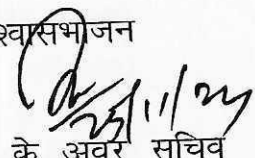 श्वासभाजन
25/11/24
के अवर सचिव